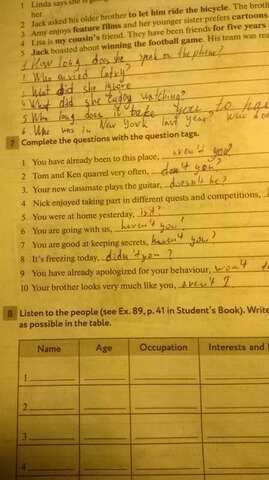 1 Linda says she is
her.
2 Jack asked his older brother to let him ride the bicycle. The broth
3 Amy enjoys feature films and her younger sister prefers cartoons.
4 Lisa is my cousin's friend. They have been friends for five years
5 Jack boasted about winning the football game. His team was
1 How long does she speak on the phone?
1 Who
What did she ignore
4 What did she enjoy watching?
5 Who long does it take here to
6 Who was in New York last year?
7 Complete the questions with the question tags.
1 You have already been to this place, aren't you?
2 Tom and Ken quarrel very often, don't you?
3 Your new classmate plays the guitar, doesn't he?
4 Nick enjoyed taking part in different quests and competitions,
5 You were at home yesterday,
6 You are going with us, haven't you?
7 You are good at keeping secrets, haven't you?
8 It's freezing today, didn't you?
9 You have already apologized for your behaviour, won't
10 Your brother looks very much like you, aren't ?
8 Listen to the people (see Ex. 89, p. 41 in Student's Book). Write
as possible in the table.
Name Age Occupation Interests and
1
2
3
4